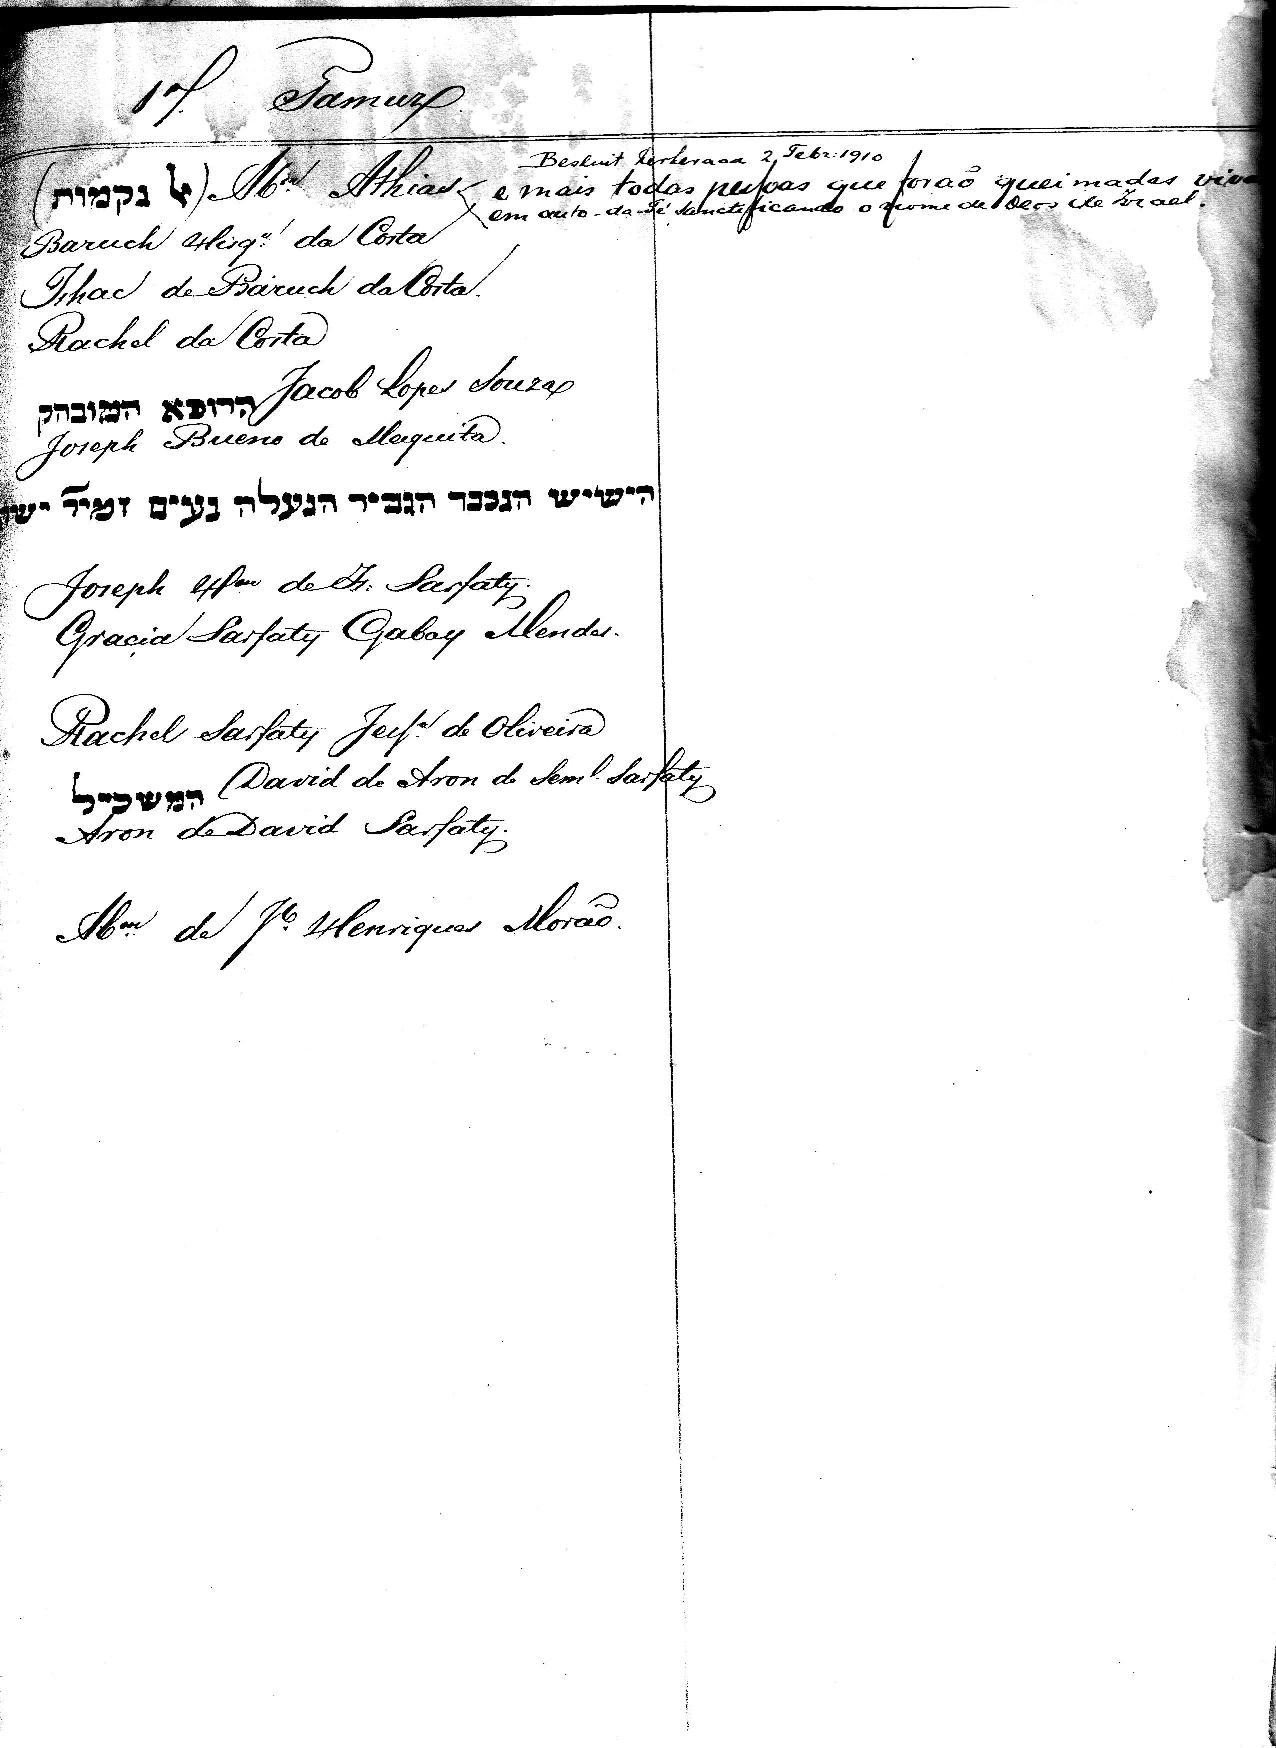 1º Tamuz
Besluit Kerkeraad 2 Febr. 1910
(אל נקמות) Abm Athias e mais todas pessoas que foraõ queimadas viva
em auto-da-fé sanctificando o nome de Deos de Israel.
Baruch da Costa
Ishac de Baruch da Costa.
Rachel da Costa
הרופא המובהק Jacob Lopes Souza
Joseph Bueno de Mesquita.
הישיש הנכבד הגביר הנעלה נעים זמיר
Joseph de Is. Sarfaty.
Gracia Sarfaty Gabay Mendes.
Rachel Sarfaty de Oliveira
המשכיל David de Aron de Seml. Sarfaty
Aron de David Sarfaty.
Abm de Jb. Henriques Moraõ.